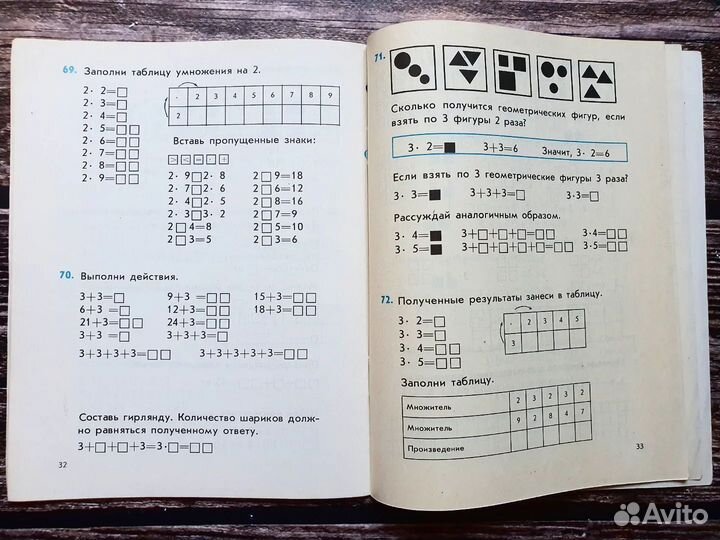 69. Заполни таблицу умножения на 2.
2 · 2=□
2 · 3=□
2 · 4=□
2 · 5=□□
2 · 6=□□
2 · 7=□□
2 · 8=□□
2 · 9=□□
· 2 3 4 5 6 7 8 9
2
Вставь пропущенные знаки:
> < = · +
2 · 9□2 · 8 2□9=18
2 · 7□2 · 6 2□6=12
2 · 4□2 · 5 2□8=16
2 · 3□3 · 2 2□7=9
2□4=8 2□5=10
2□3=5 2□3=6
70. Выполни действия.
3+3=□ 9+3 =□□ 15+3=□□
6+3 =□ 12+3=□□ 18+3=□□
21+3=□□ 24+3=□□
3+3 =□ 3+3+3=□
3+3+3+3=□□ 3+3+3+3+3=□□
Составь гирлянду. Количество шариков долж-
но равняться полученному ответу.
3+□+□+3=3·□=□□
32
71.
Сколько получится геометрических фигур, если
взять по 3 фигуры 2 раза?
3 · 2=■ 3+3=6 Значит, 3 · 2=6
Если взять по 3 геометрические фигуры 3 раза?
3 · 3=■ 3+3+3=□ 3·3=□
Рассуждай аналогичным образом.
3 · 4=■ 3+□+□+□=□□ 3·4=□□
3 · 5=■ 3+□+□+□+□=□□ 3·5=□□
72. Полученные результаты занеси в таблицу.
3 · 2=□
3 · 3=□
3 · 4=□□
3 · 5=□□
· 2 3 4 5
3
Заполни таблицу.
Множитель 2 3 2 3 2
Множитель 9 2 8 4 7
Произведение
33
Avito